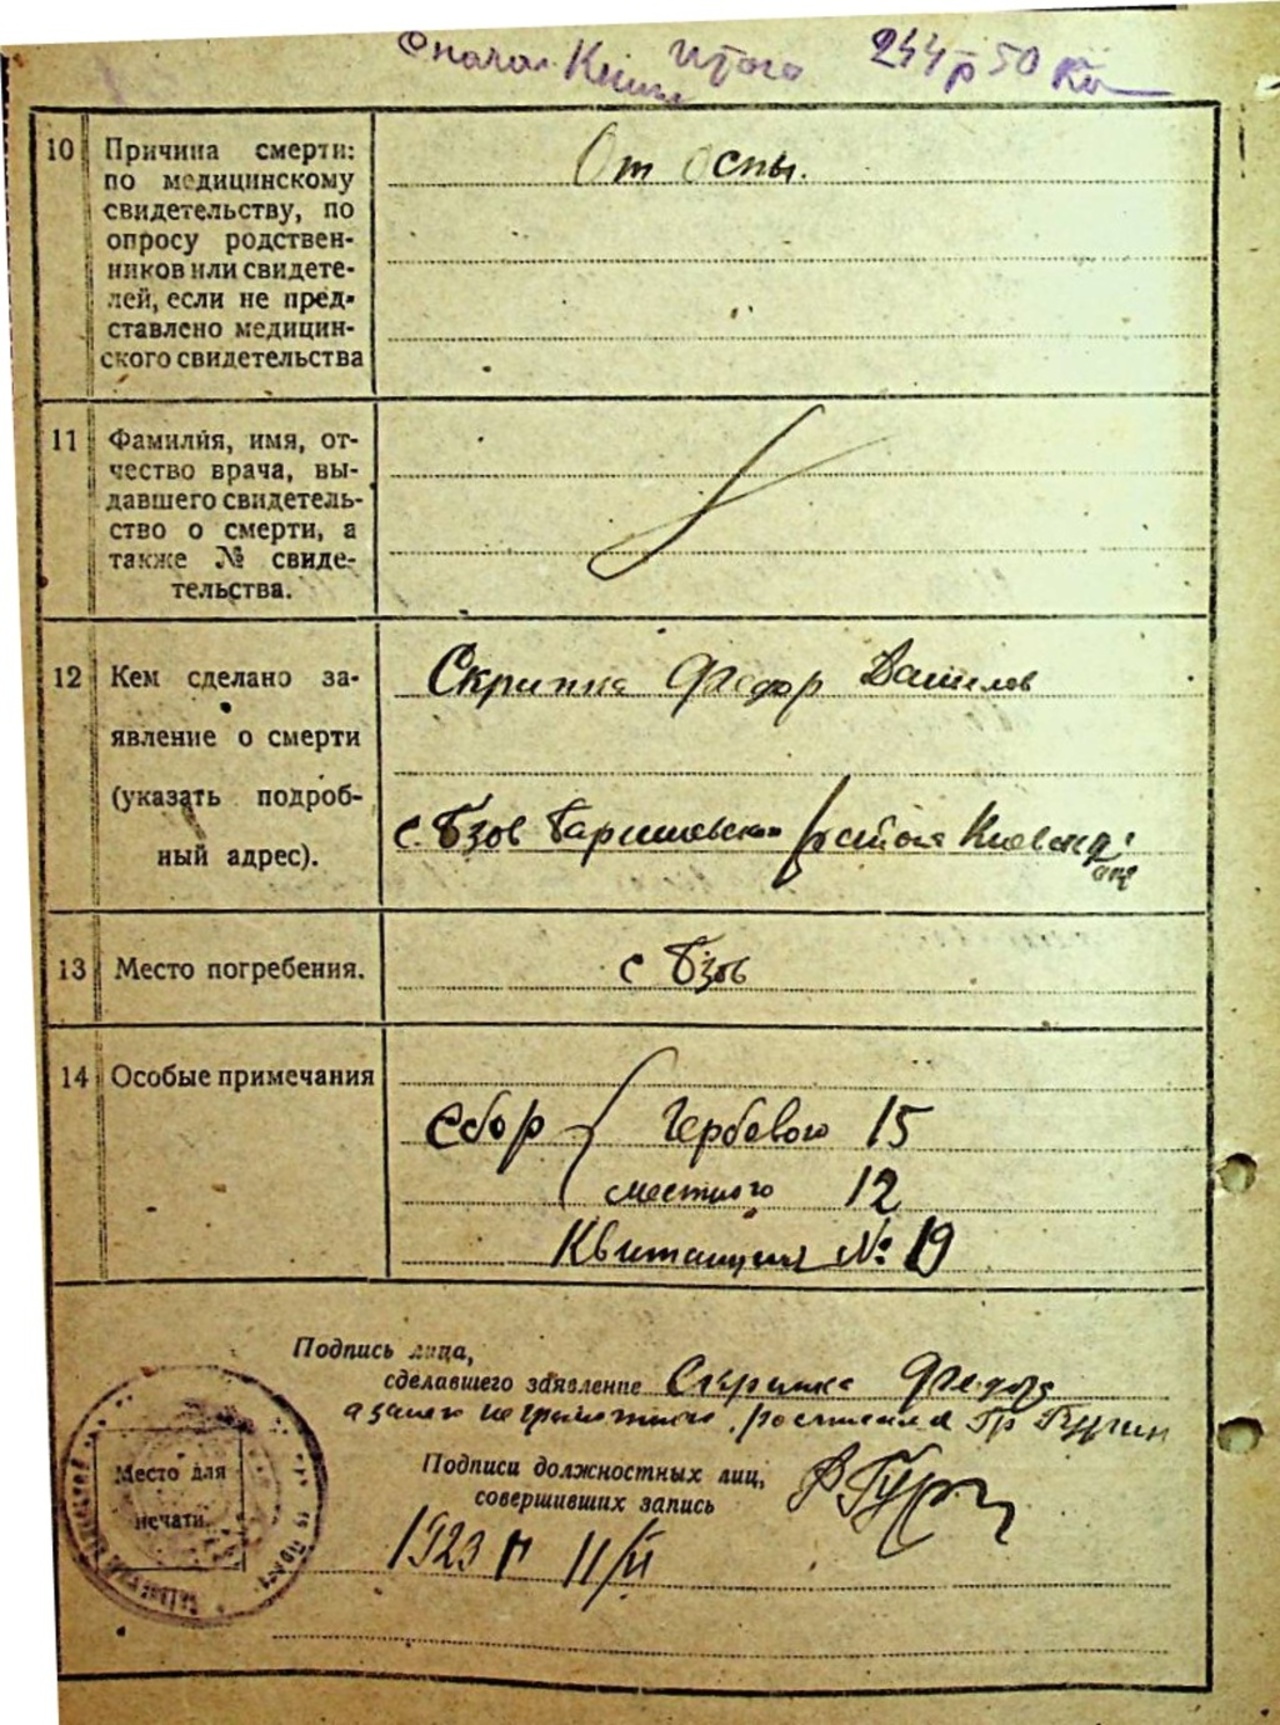 Итого 244 р 50 к
10 Причина смерти:
по медицинскому
свидетельству, по
опросу родствен-
ников или свидете-
лей, если не пред-
ставлено медицин-
ского свидетельства
От оспы.
11 Фамилия, имя, от-
чество врача, вы-
давшего свидетель-
ство о смерти, а
также № свиде-
тельства.
12 Кем сделано за-
явление о смерти
(указать подроб-
ный адрес).
Скрипка Федор Данилов
с. Бзов Баришевск района Киевск
13 Место погребения.
с Бзов
14 Особые примечания
Сбор гербового 15
местного 12
Квитанция № 19
Подпись лица,
сделавшего заявление Скрипка Федор
а за него неграмотного росписался Гр
Подписи должностных лиц,
совершивших запись
Место для
печати.
1923 г 11/II